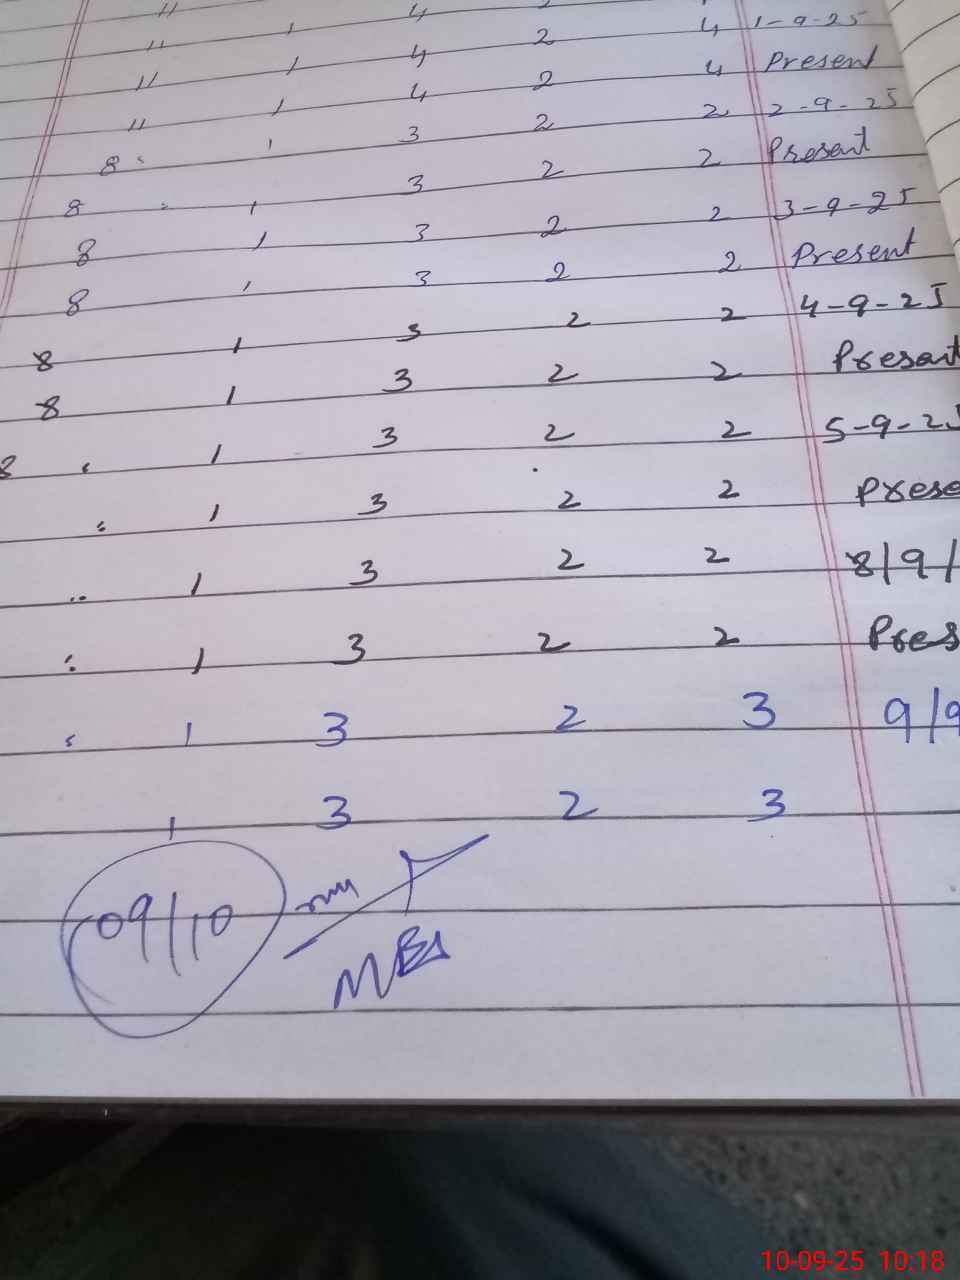 " 1 4 2 4 1-9-25
" 1 4 2 4 Present
" 1 4 2 2 2-9-25
8 1 3 2 2 Present
8 1 3 2 2 3-9-25
8 1 3 2 2 Present
8 1 3 2 2 4-9-25
8 1 3 2 2 Present
8 1 3 2 2 5-9-25
8 1 3 2 2 Prese
1 3 2 2 8/9/
1 3 2 2 Pres
1 3 2 3 9/9
1 3 2 3
09/10
10-09-25 10:18